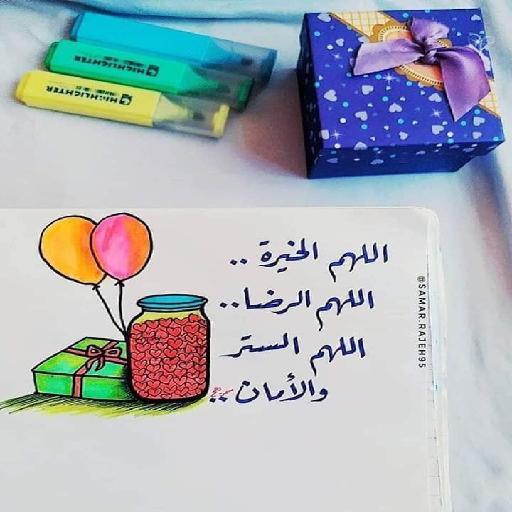 HIGHLIGHTER
HIGHLIGHTER
اللهم الخيرة ..
اللهم الرضا..
اللهم الستر
والأمان..
@SAMAR.RAJEH95